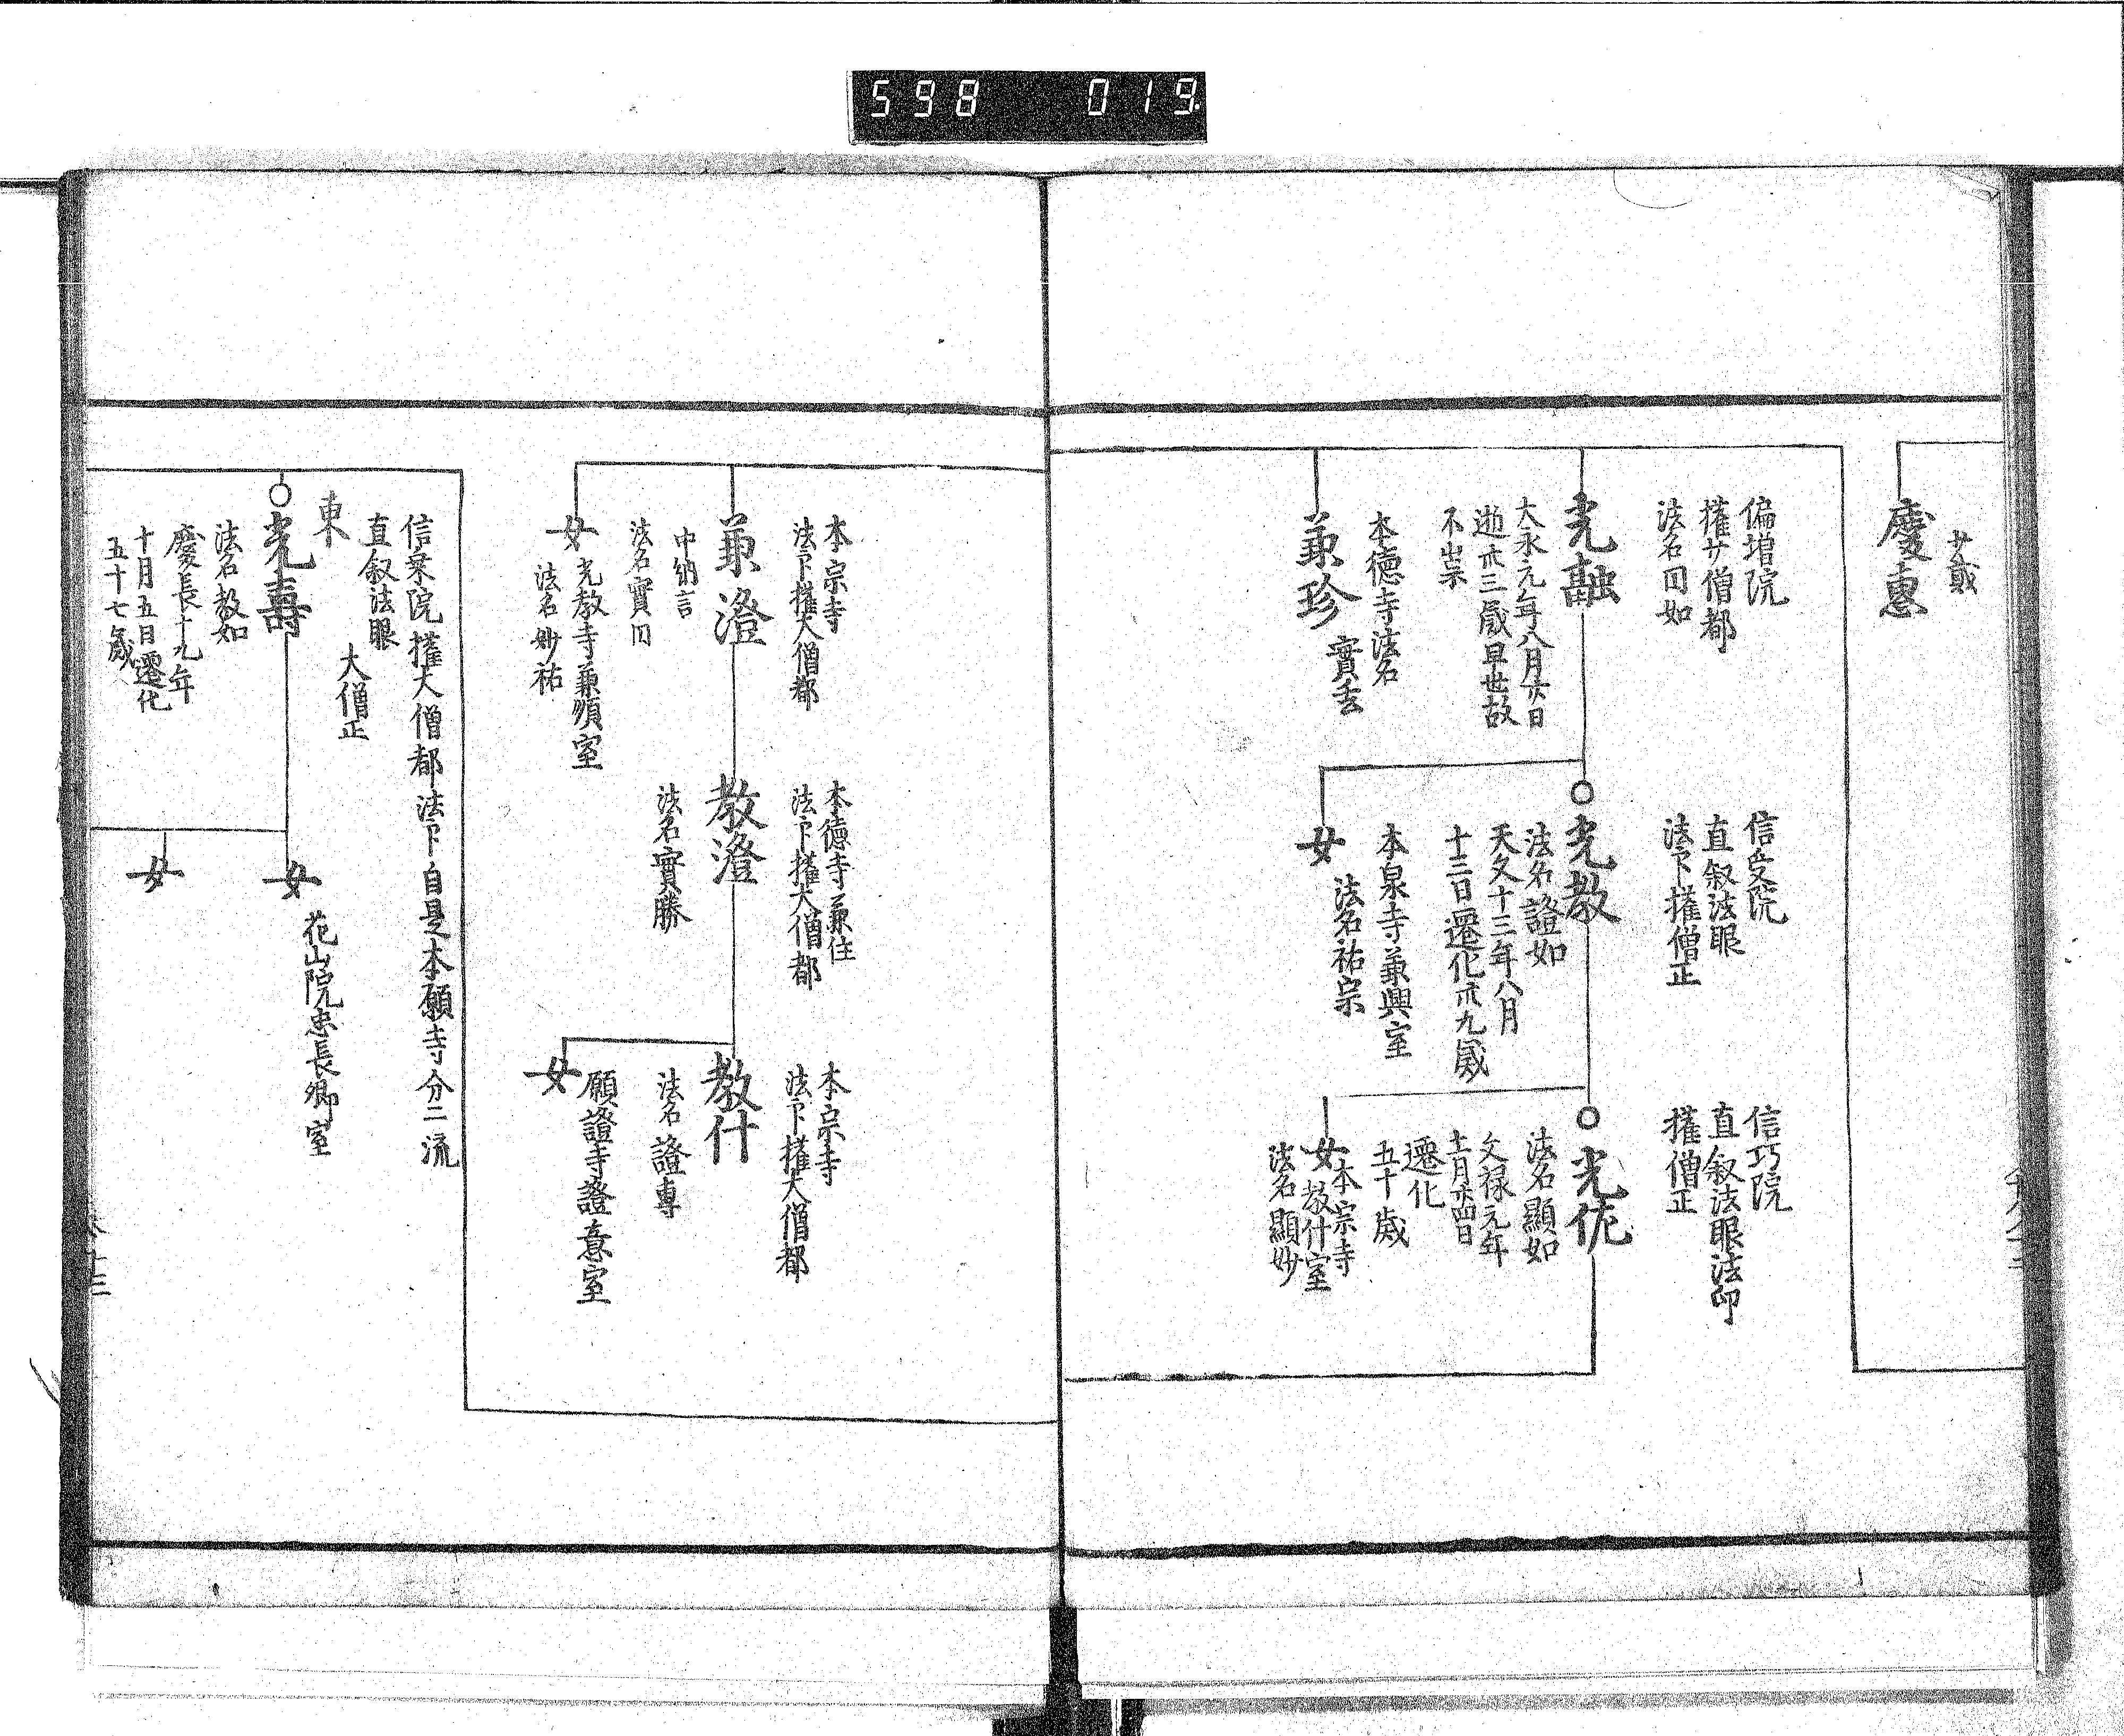 598 019
廿歳
慶惠
偏増院
權少僧都
法名円如
光融
大永元年八月廿日
逝卅三歳早世故
不出家
本徳寺法名
實玄
兼珍
信受院
直叙法眼
法印權僧正
光教
法名證如
天文十三年八月
十三日遷化卅九歳
本泉寺兼興室
法名祐宗
女
信巧院
直叙法眼法印
權僧正
光佐
法名顯如
文禄元年
十一月廿四日
遷化
五十歳
女
本宗寺
教什室
法名顯妙
本宗寺
法印權大僧都
兼澄
中納言
法名實円
女
光教寺兼順室
法名妙祐
本徳寺兼住
法印權大僧都
教澄
法名實勝
本宗寺
法印權大僧都
教什
法名證專
願證寺證意室
女
信乗院權大僧都法印自是本願寺分二流
直叙法眼
大僧正
東
光壽
法名教如
慶長十九年
十月五日遷化
五十七歳
女
花山院忠長卿室
女